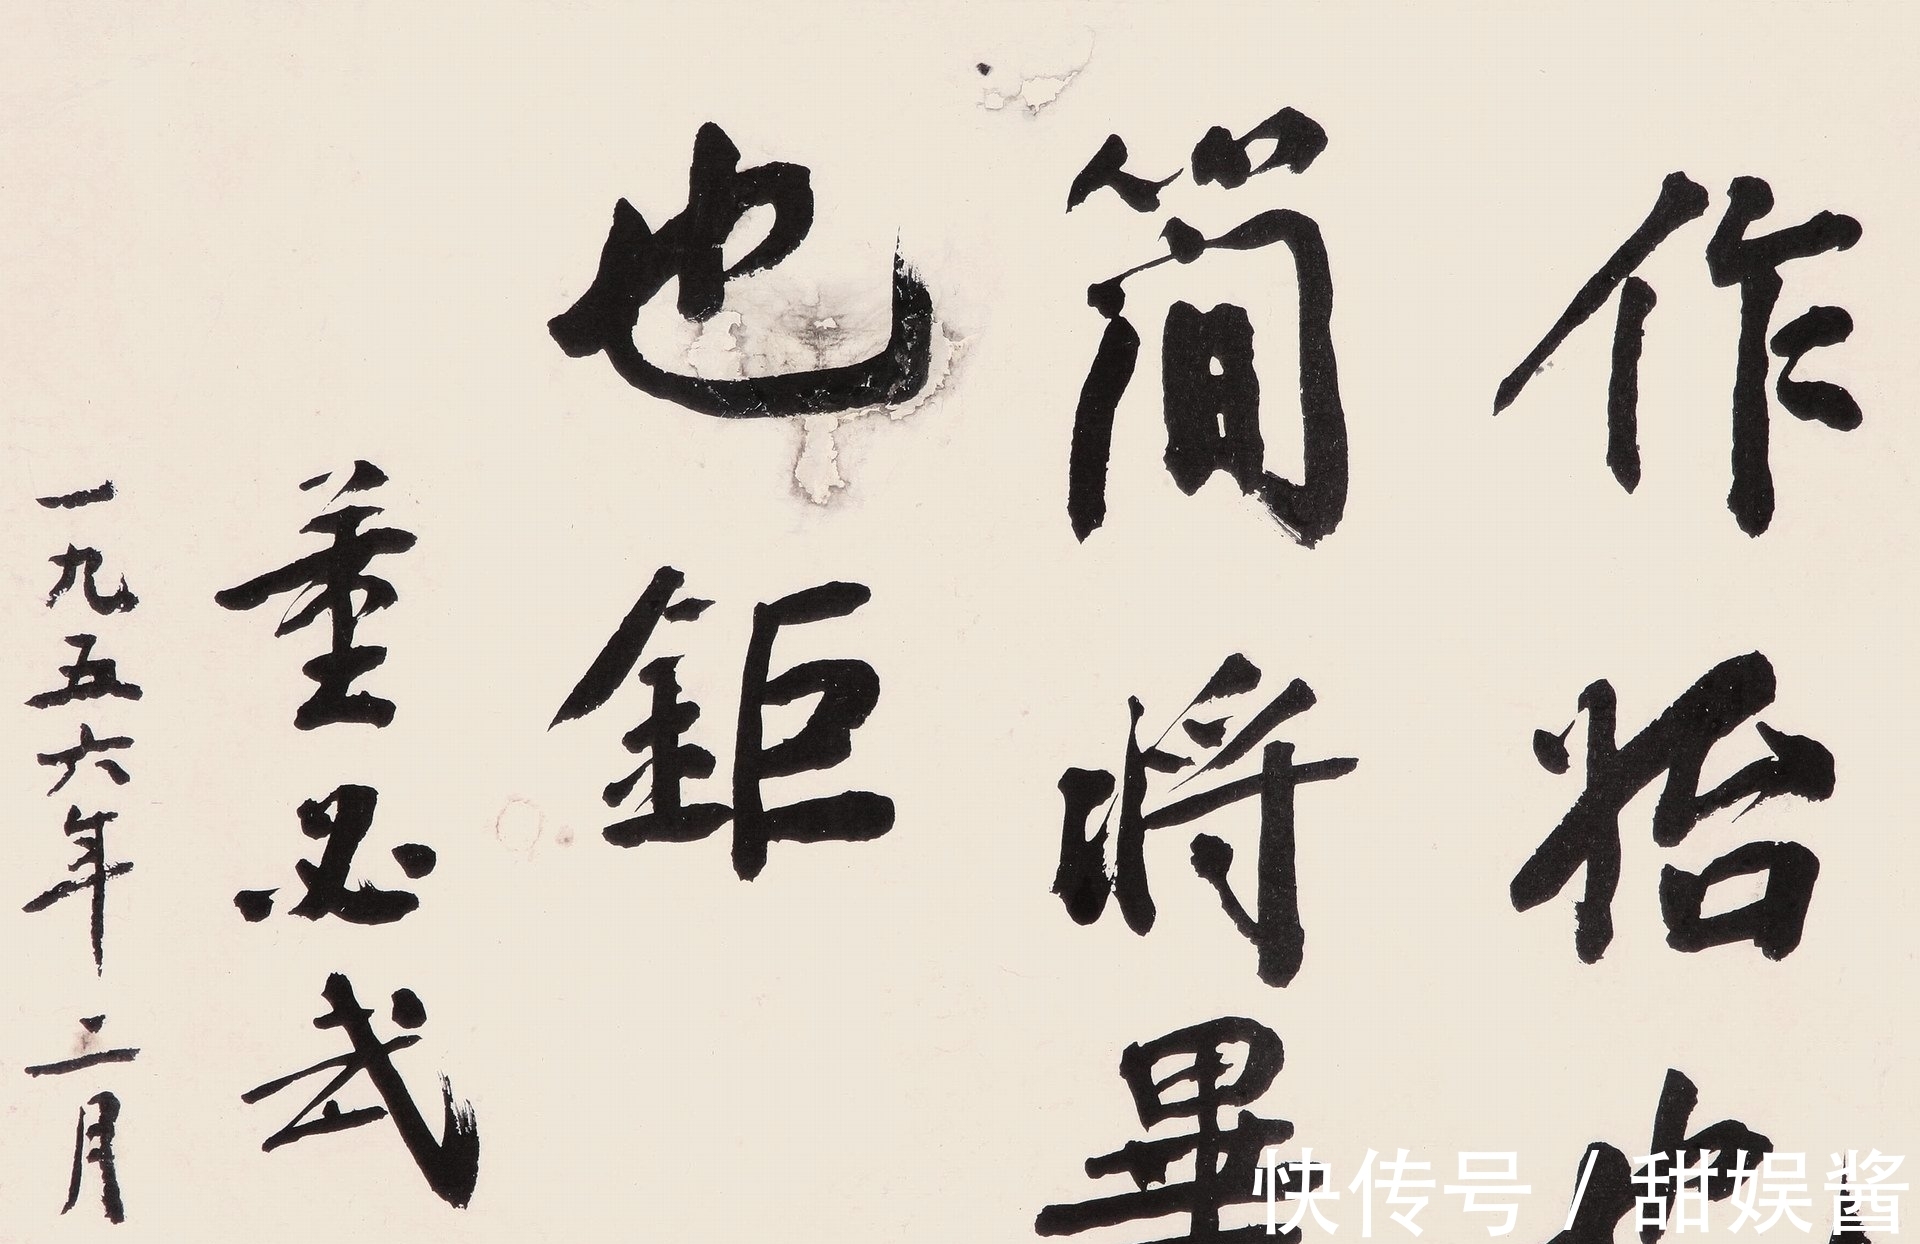 作始也
簡將畢
也鉅
董必武
一九五六年二月
快传号 / 甜娱酱